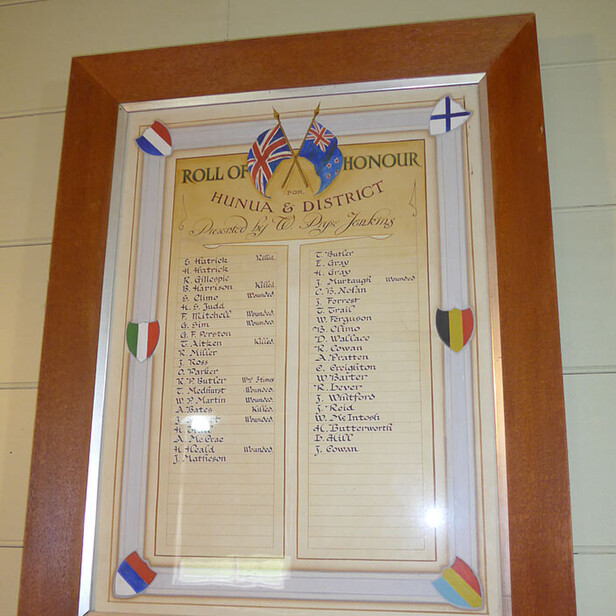 ROLL OF HONOUR
FOR
HUNUA & DISTRICT
Presented by W. Pryse Jenkins
E. Hatrick Killed.
H. Hatrick
R. Gillespie
B. Harrison Killed.
S. Climo Wounded.
H. S. Judd
F. Mitchell Wounded.
G. Sim Wounded.
G. F. Perston
T. Aitken Killed.
R. Miller
J. Ross
O. Parker
R. P. Butler
T. Medhurst Wounded.
W. P. Martin Wounded.
A. Bates Killed.
J. Wounded.
H.
A. McCrae
H. Heald Wounded.
J. Matheson
T. Butler
E. Gray
H. Gray
J. Murtaugh Wounded
C. B. Nolan
J. Forrest
T. Trail
W. Ferguson
B. Climo
D. Wallace
R. Cowan
A. Pratten
C. Creighton
W. Barter
R. Lever
J. Whitford
J. Reid
W. McIntosh
H. Butterworth
D. Hill
J. Cowan